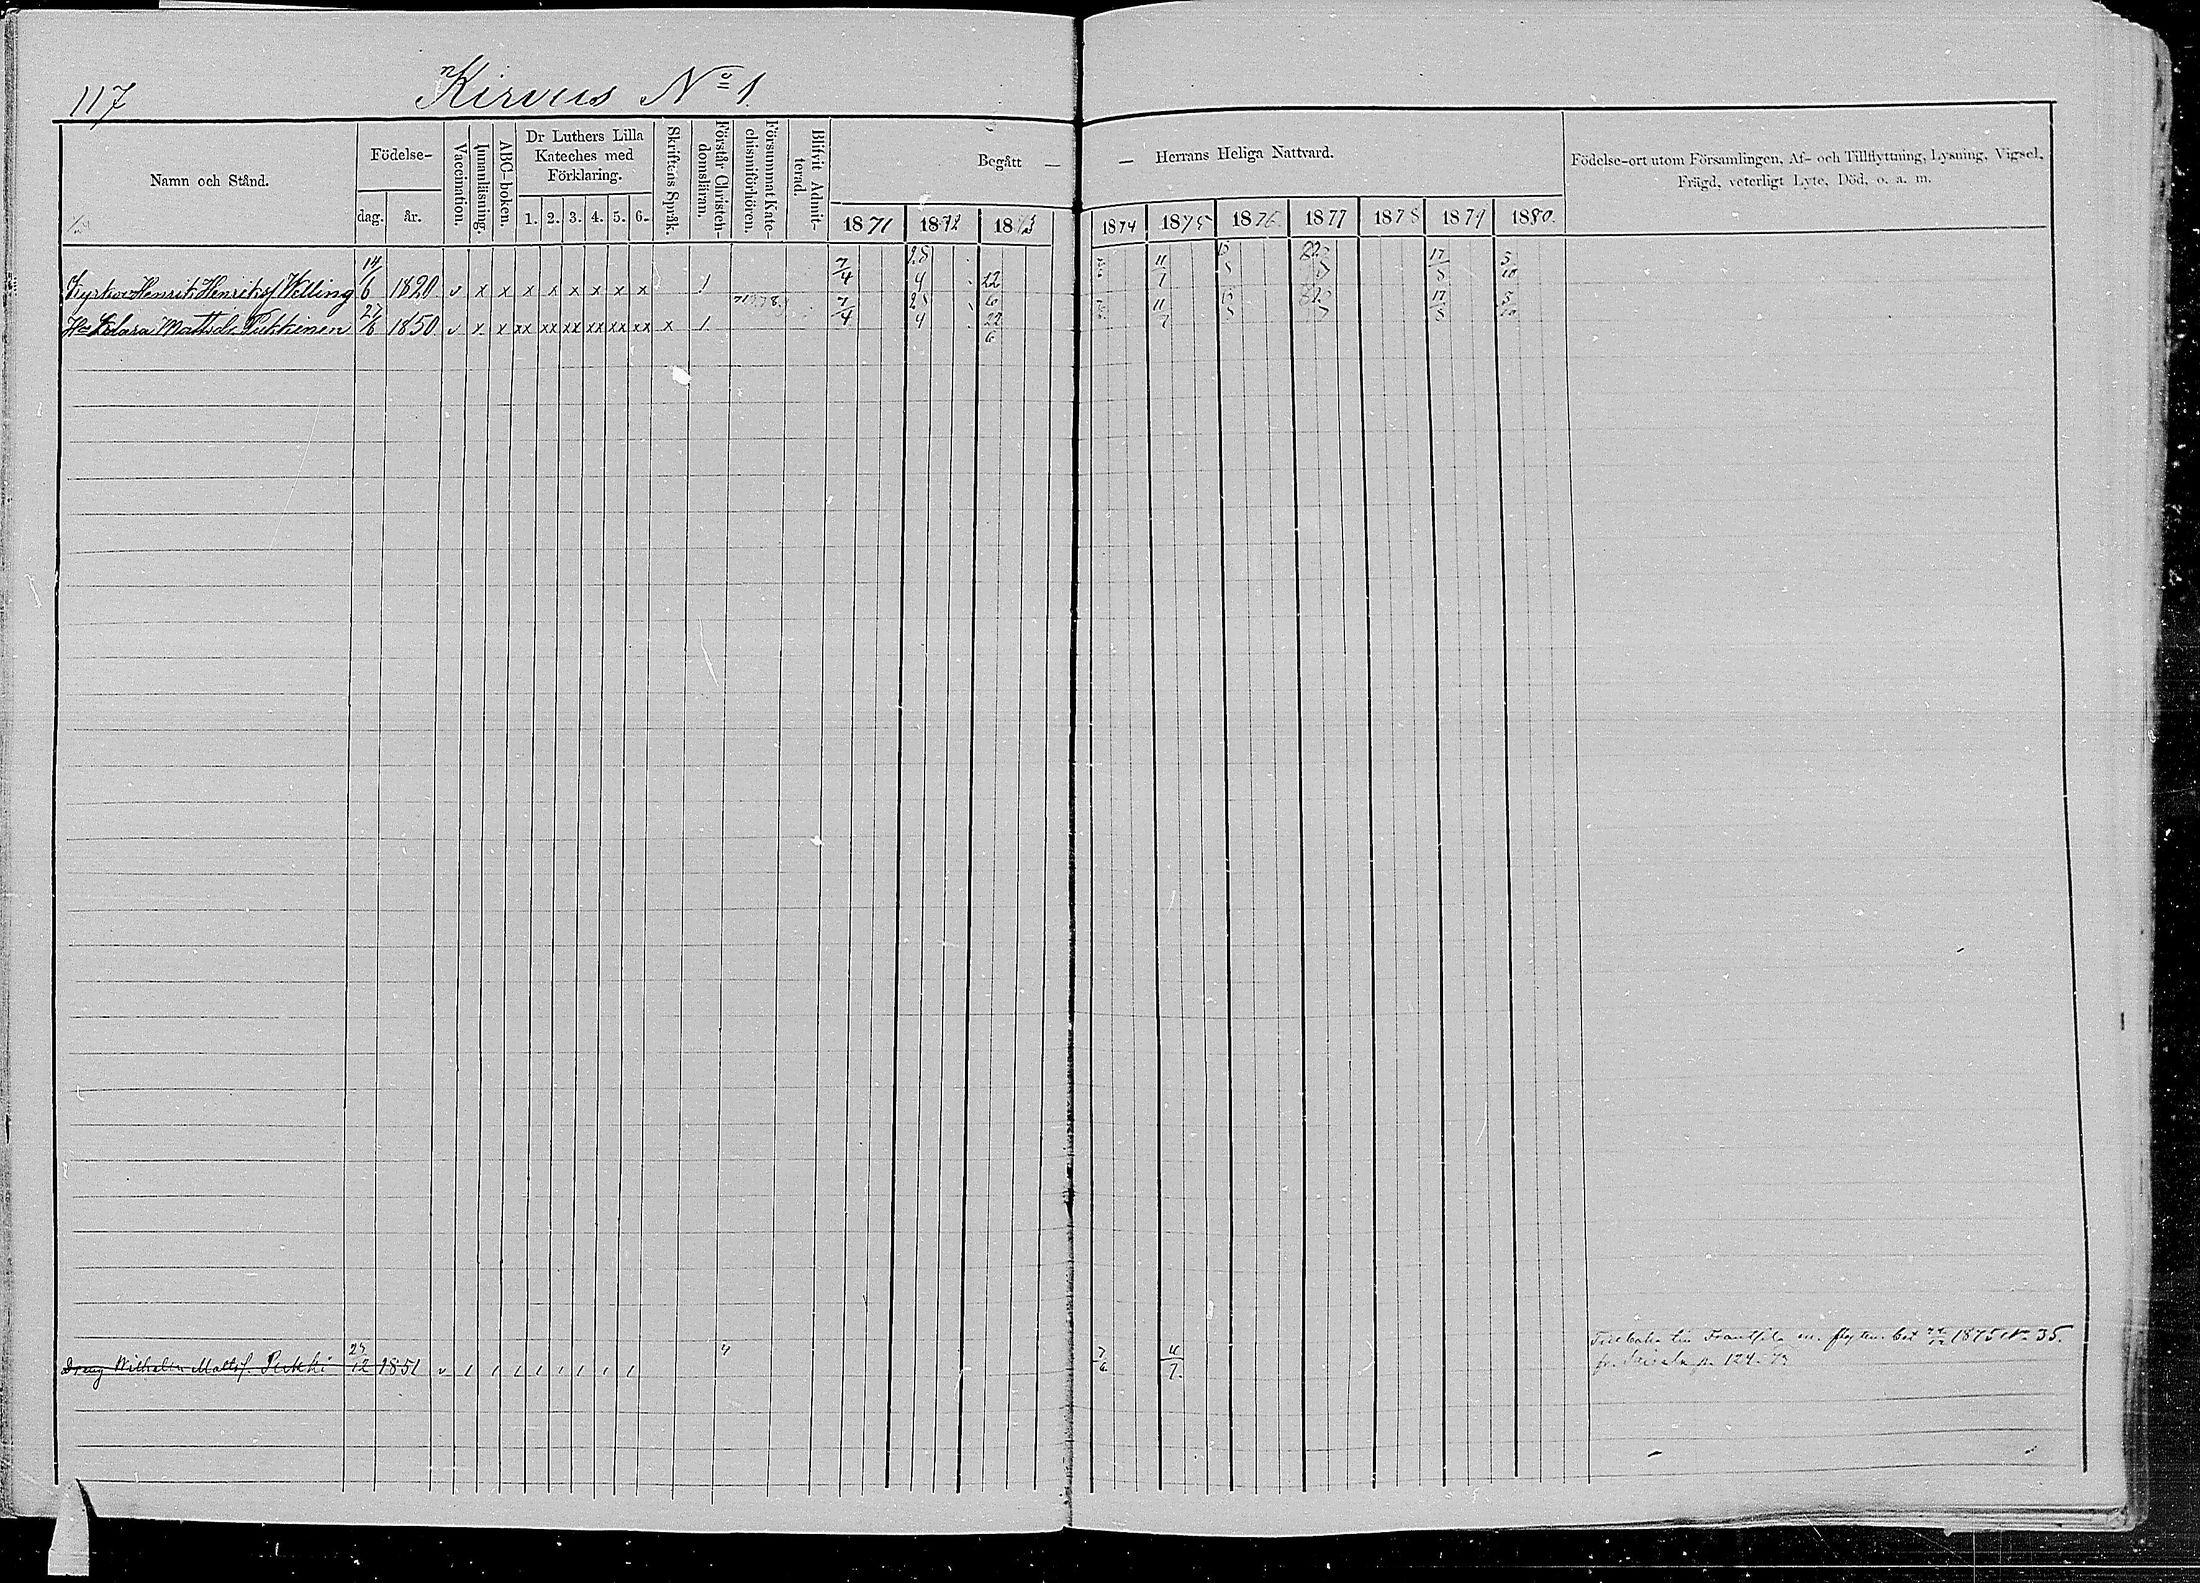 117
Kirvus No 1.
Namn och Stånd.
Födelse-
dag.
år.
Vaccination.
Innanläsning.
ABC-boken.
Dr Luthers Lilla
Kateches med
Förklaring.
1. 2. 3. 4. 5. 6.
Skriftens Språk.
Förstår Christen-
domsläran.
Försummat Kate-
chismiförhören.
Blifvit Admit-
terad.
Begått —
— Herrans Heliga Nattvard.
1871 1872 1873 1874 1875 1876 1877 1878 1879 1880.
Födelse-ort utom Församlingen, Af- och Tillflyttning, Lysning, Vigsel,
Frägd, veterligt Lyte, Död, o. a. m.
Henrik Henriksf Welling 14/6 1820 v x x x x x x x x 1 7/4 28/4 22/6 11/7 17/5 5/10
Hu Klara Mattsdr Pukkinen 27/6 1850 v x x xx xx xx xx xx xx x 1 7/4 28/4 22/6 11/7 17/5 5/10
Dreng Wilhelm Mattsf. Pukki 25/12 1851 v 1 1 1 1 1 1 1 1 7/6 11/7
Frantsila 1875 No 35.
p. 124